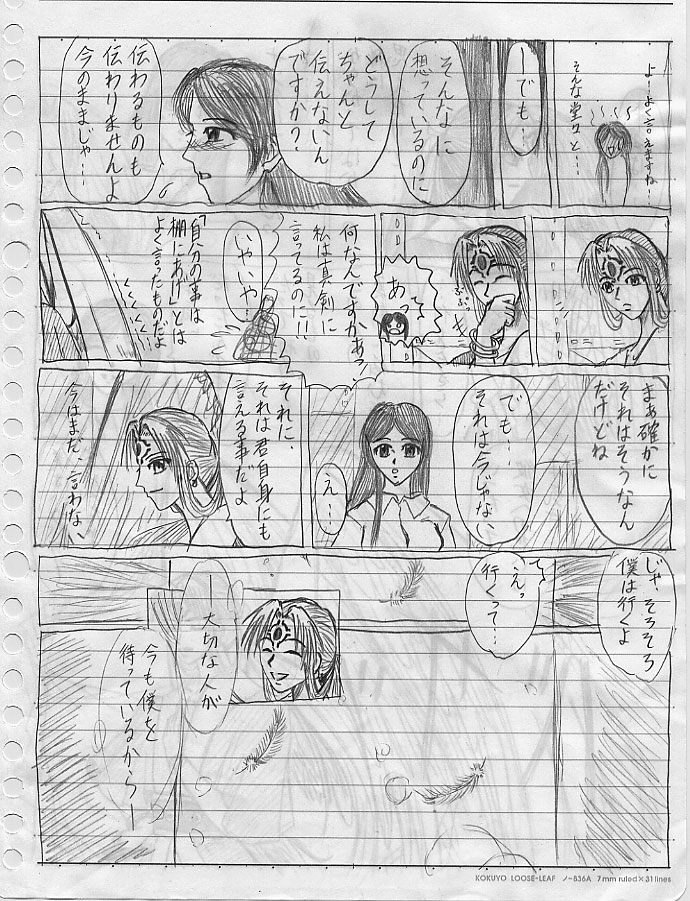 よーよく言えますね…
そんな堂々と…
―でも…
そんなに
想っているのに
どうして
ちゃんと
伝えないん
ですか？
伝わるものも
伝わりませんよ
今のままじゃ…
ぷぷっ
あーって…
何なんですかあっ！
私は真剣に
言ってるのに!!
いやいや…
「自分の事は
棚にあげ」とは
よく言ったものだよ
くくくく…
まぁ確かに
それはそうなん
だけどね
でも…
それは今じゃない
え…
それに、
それは君自身にも
言える事だよ
今はまだ、言わない
じゃ、そろそろ
僕は行くよ
えっ
行くって…
―大切な人が
今も僕を
待っているから―
KOKUYO LOOSE-LEAF ノ-836A 7mm ruled×31 lines